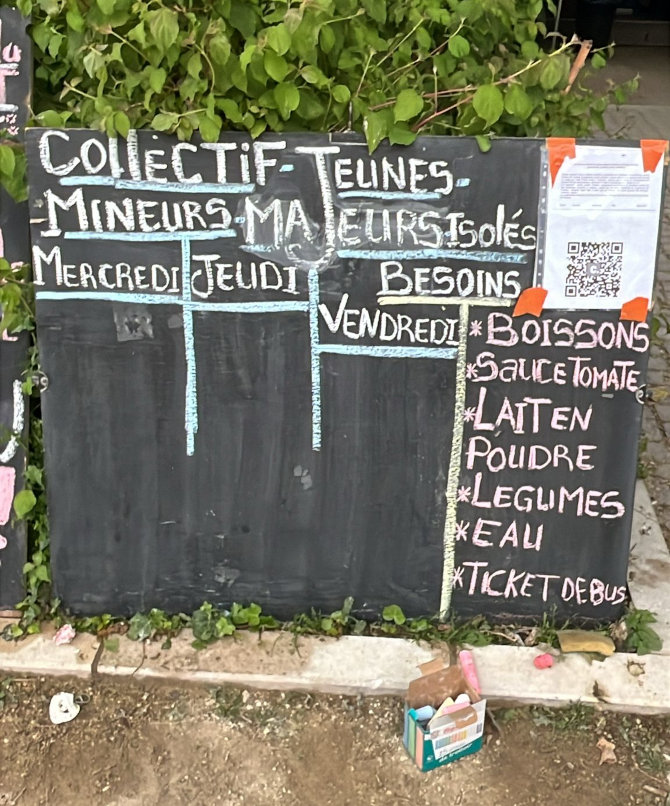 COllECTiF-JEUNES-
MINEURS-MAJEURS ISOlés
MERCREDI JEUDI
BESOINS
VENDREDI
*BOISSONS
*SAUCE TOMATE
*LAIT EN
POUDRE
*LEGUMES
*EAU
*TICKET DE BUS